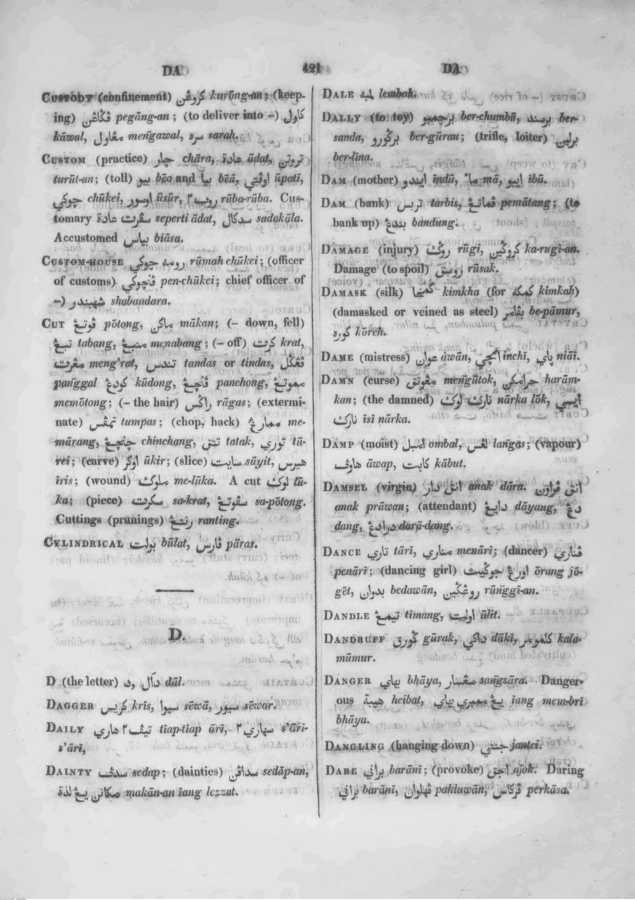 DA
421
DA
CUSTODY (confinement) کروڠن kurūng-an; (keep-
ing) ڤݢاڠن pegāng-an; (to deliver into –) کاول
kāwal, مڠاول meñgawal, سره sarah.
CUSTOM (practice) چار chāra, عادة ādat, تروتن
turūt-an; (toll) بيو būa and بيا bēā, اوڤتي ūpati,
چوکي chūkei, اوسور ūsūr, روب۲ rūba-rūba. Cus-
tomary سڤرت عادة seperti ādat, سدکال sadakāla.
Accustomed بياس biāsa.
CUSTOM-HOUSE رومه چوکي rūmah chūkei; (officer
of customs) ڤنچوکي pen-chūkei; chief officer of
–) شهبندر shabandara.
CUT ڤوتڠ pōtong, ماکن mākan; (– down, fell)
تبڠ tabang, منبڠ menabang; (– off) کرت krat,
مڠرت meng'rat, تندس tandas or tindas,
panggal کودڠ kūdong, ڤنچڠ panchong,
memōtong; (– the hair) راݢس rāgas; (extermi-
nate) تمڤس tumpas; (chop, hack) me-
mārang, چنچڠ chinchang, تتق tatak, توري tū-
rei; (carve) اوکر ūkir; (slice) سايت sāyit, هيرس
īris; (wound) ملوک me-lūka. A cut لوک lū-
ka; (piece) سکرت sa-krat, سڤوتڠ sa-pōtong.
Cuttings (prunings) رنتڠ ranting.
CYLINDRICAL بولت būlat, ڤارس pāras.
D.
D (the letter) د, دال dāl.
DAGGER کريس kris, سيوا sēwā, سيور sēwar.
DAILY تيڤ۲ هاري tiap-tiap āri, سهاري۲ s'āri-
s'āri,
DAINTY سدڤ sedap; (dainties) سداڤن sedāp-an,
مکانن يڠ لذة makān-an iang lezzat.
DALE لمبه lembah.
DALLY (to toy) برچمبو ber-chumbū, برسند ber-
sanda, برݢورو ber-gūrau; (trifle, loiter) برلين
ber-līna.
DAM (mother) ايندو indū, ما mā, ايبو ibū.
DAM (bank) تربس tarbis, ڤماتڠ pemātang; (to
bank up) بندڠ bandung.
DAMAGE (injury) روݢي rūgi, کروݢين ka-rugi-an.
Damage (to spoil) روسق rūsak.
DAMASK (silk) کمخا kimkha (for کمکه kimkah)
(damasked or veined as steel) بڤامر be-pāmur,
کوره kōreh.
DAME (mistress) اوان āwān, انچي inchi, ياي niāi.
DAMN (curse) مڠوتق meñgūtok, حرامکن harām-
kan; (the damned) نارک لوک nārka lōk, ايسي
نارک isī nārka.
DAMP (moist) امبل ambal, لڠس lañgas; (vapour)
هاوڤ āwap, کابت kābut.
DAMSEL (virgin) انق دار anak dāra. انق ڤراون
anak prāwan; (attendant) دايڠ dāyang, دڠ
dang, دردڠ dara-dang.
DANCE تاري tāri, مناري menāri; (dancer) ڤناري
penāri; (dancing girl) اورڠ جوݢيت ōrang jō-
gēt, بدوان bedawān, روڠݢين rūnggi-an.
DANDLE تيمڠ timang, اولت ūlit.
DANDRUFF ݢورق gūrak, داکي dāki, کلمومر kala-
mūmur.
DANGER بهاي bhāya, سڠسار sañgsāra. Danger-
ous هيبة heibat, يڠ ممبري بهاي iang mem-bri
bhāya.
DANGLING (hanging down) جنتي jantei.
DARE براني barāni; (provoke) اجق ājok. Daring
براني barāni, ڤهلوان pahluwān, ڤرکاس perkāsa.